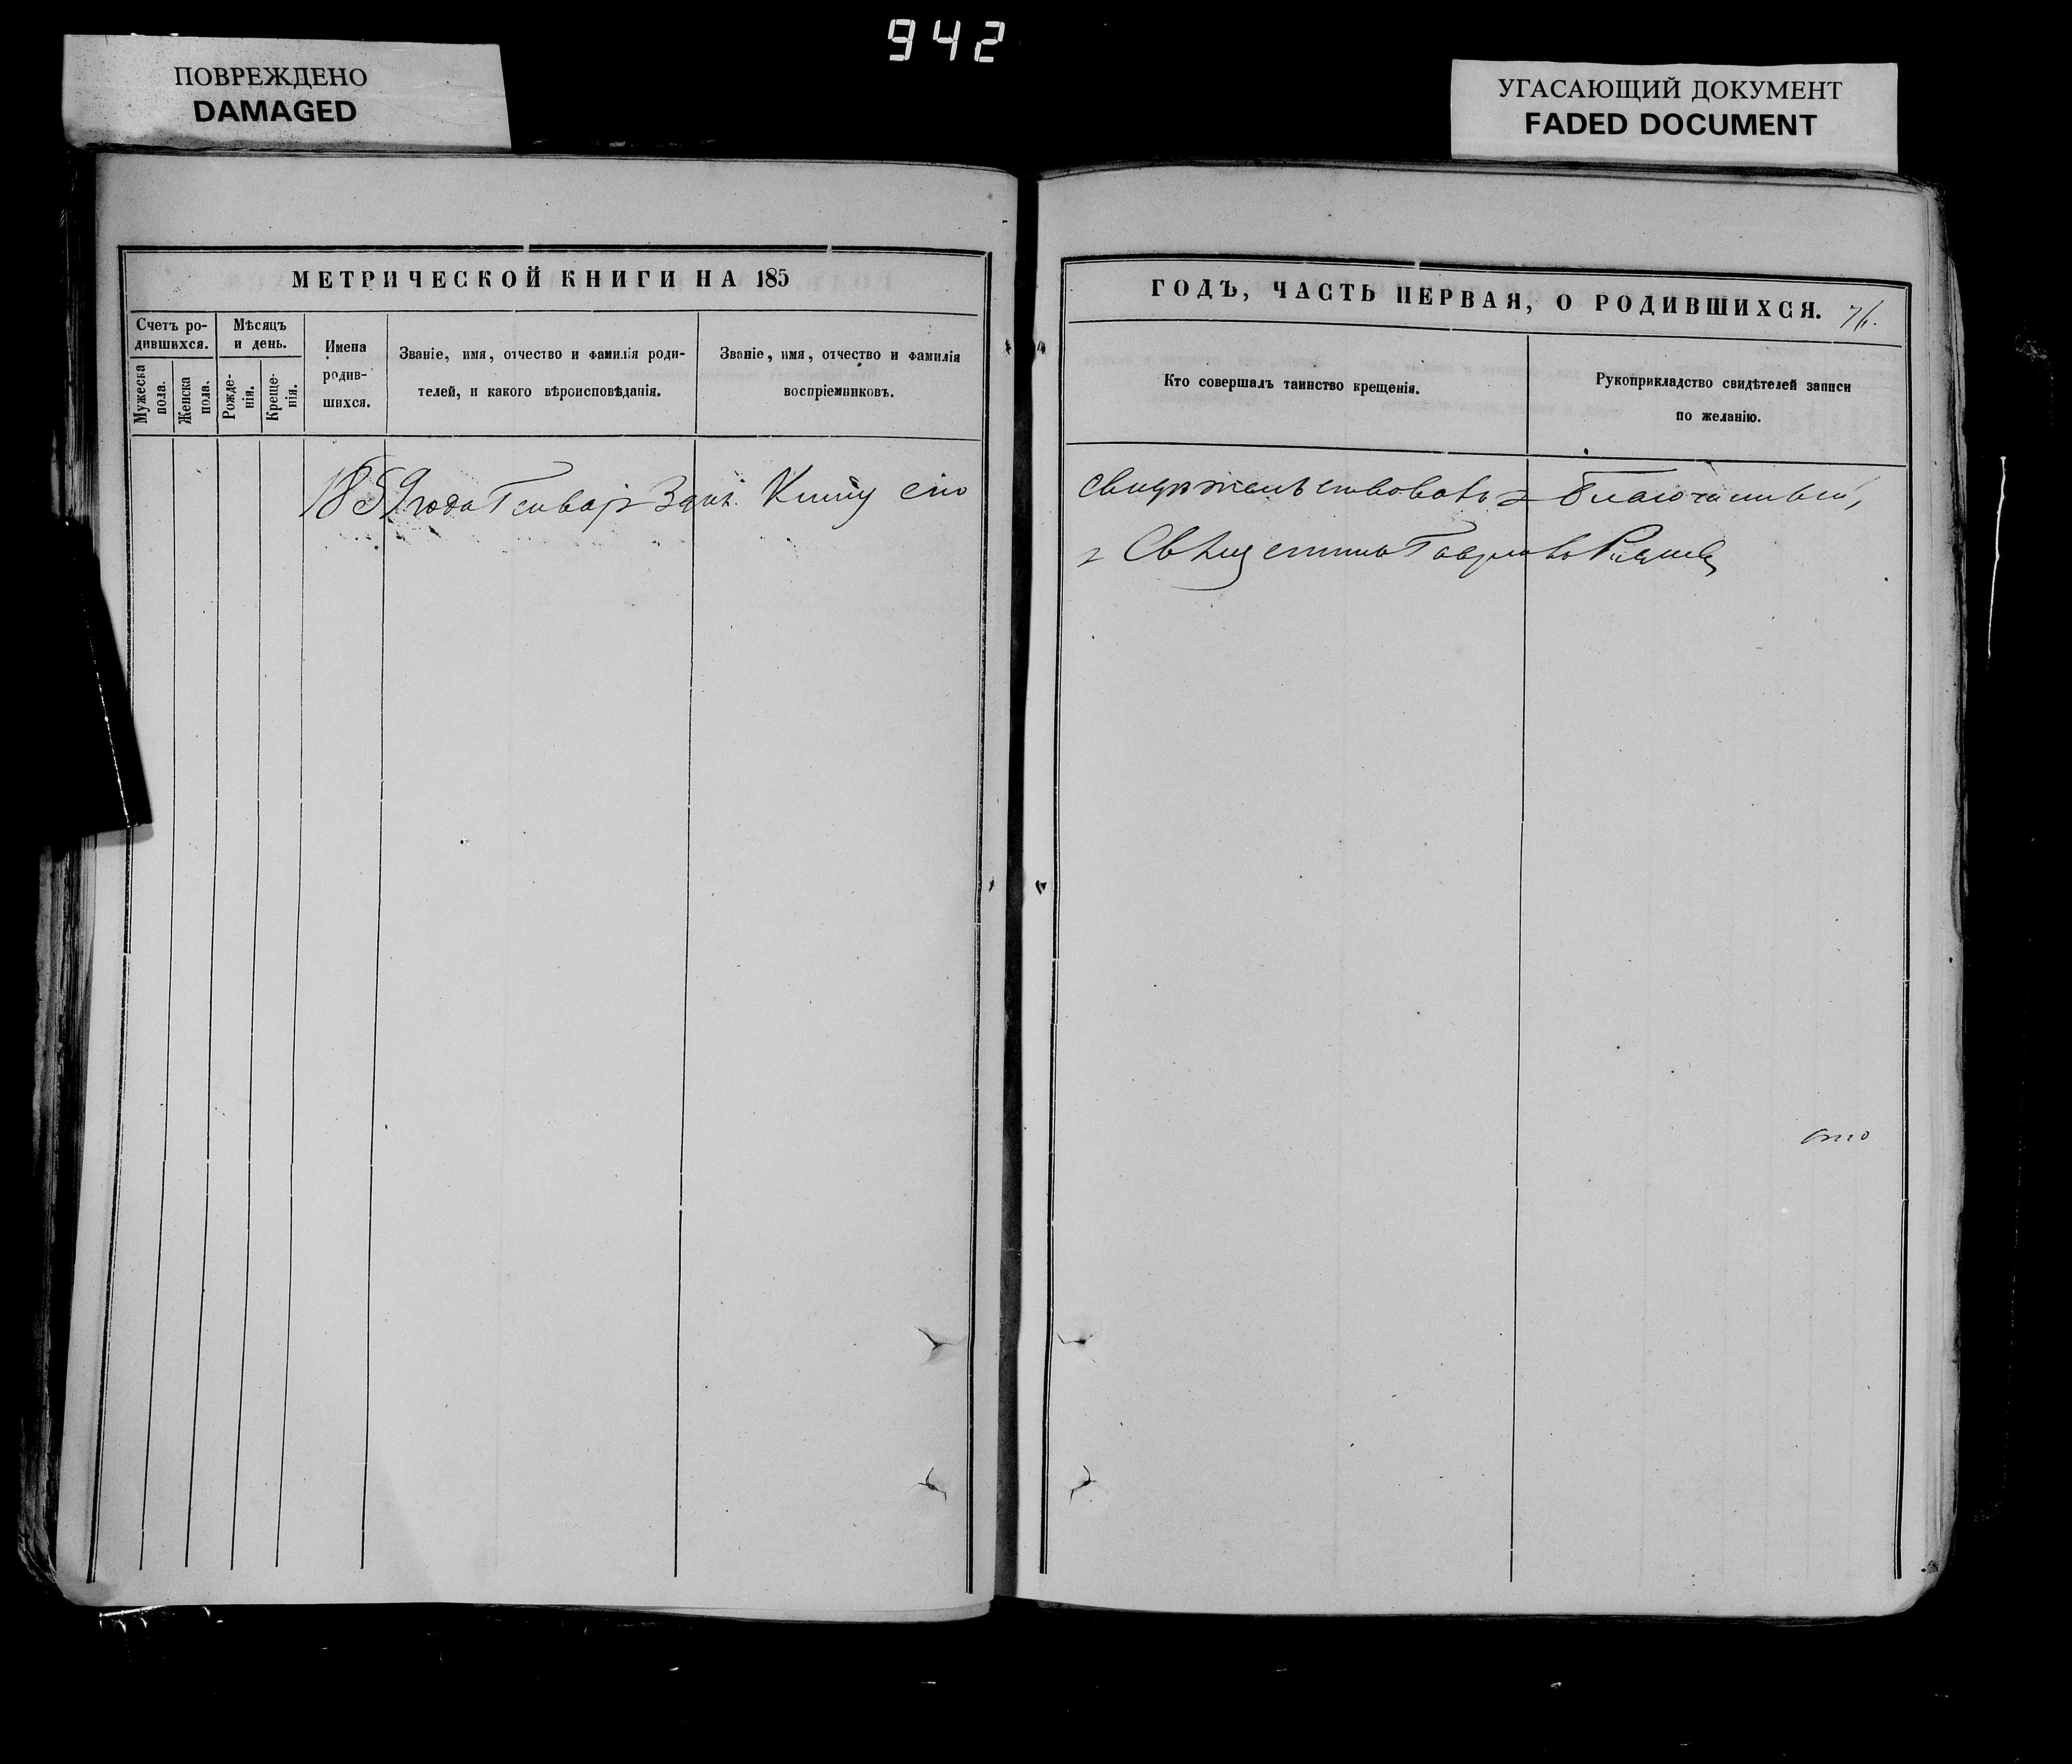 942
ПОВРЕЖДЕНО
DAMAGED
УГАСАЮЩИЙ ДОКУМЕНТ
FADED DOCUMENT
МЕТРИЧЕСКОЙ КНИГИ НА 185
Счетъ ро-
дившихся.
Мужеска
пола.
Женска
пола.
Мѣсяцъ
и день.
Рожде-
нія.
Креще-
нія.
Имена
родив-
шихся.
Званіе, имя, отчество и фамилія роди-
телей, и какого вѣроисповѣданія.
Званіе, имя, отчество и фамилія
воспріемниковъ.
1859 года Генваря 3 дня. Книгу сію
ГОДЪ, ЧАСТЬ ПЕРВАЯ, О РОДИВШИХСЯ.
76.
Кто совершалъ таинство крещенія.
Рукоприкладство свидѣтелей записи
по желанію.
свидѣтельствовалъ Благочинный,
Священникъ